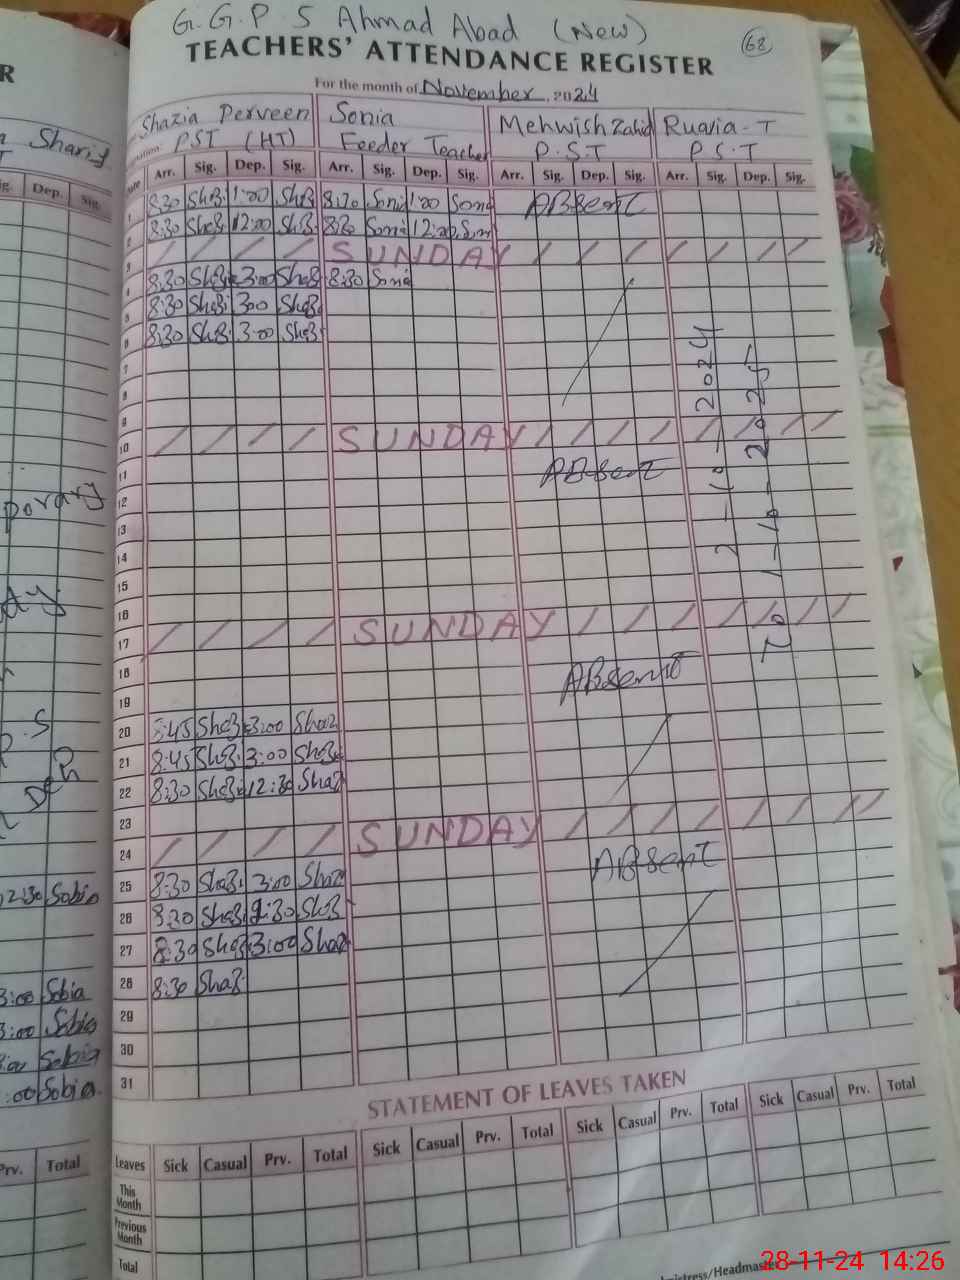 G.G.P.S Ahmad Abad (New)
68
TEACHERS' ATTENDANCE REGISTER
For the month of November, 2024
Shazia Perveen Sonia Mehwish Zahid Ruavia-T
PST (HT) Feeder Teacher P.S.T P.S.T
Arr. Sig. Dep. Sig. Arr. Sig. Dep. Sig. Arr. Sig. Dep. Sig. Arr. Sig. Dep. Sig.
1 8:30 ShaZ 1:00 ShaZ 8:30 Sonia 1:00 Sonia ABsent
2 8:30 ShaZ 12:00 ShaZ 8:30 Sonia 12:00 Son
3 SUNDAY
4 8:30 ShaZ 3:00 ShaZ 8:30 Sonia
5 8:30 ShaZ 300 ShaZ
6 8:30 ShaZ 3:00 ShaZ
7
8
9
10 SUNDAY
11 ABsent
12
13
14
15
16
17 SUNDAY
18 ABsent
19
20 8:45 ShaZ 3:00 ShaZ
21 8:45 ShaZ 3:00 ShaZ
22 8:30 ShaZ 12:30 ShaZ
23
24 SUNDAY
25 8:30 ShaZ 3:00 ShaZ ABsent
26 8:30 ShaZ 2:30 ShaZ
27 8:30 ShaZ 3:00 ShaZ
28 8:30 ShaZ
29
30
31
2-10-2024
To 1-10-2025
STATEMENT OF LEAVES TAKEN
Leaves Sick Casual Prv. Total Sick Casual Prv. Total Sick Casual Prv. Total Sick Casual Prv. Total
This Month
Previous Month
Total
mistress/Headmaster
28-11-24 14:26
R
Sharif
Sig. Dep. Sig.
porary
P.S
12:30 Sobia
3:00 Sobia
3:00 Sobia
Sobia
:00 Sobia
Prv. Total